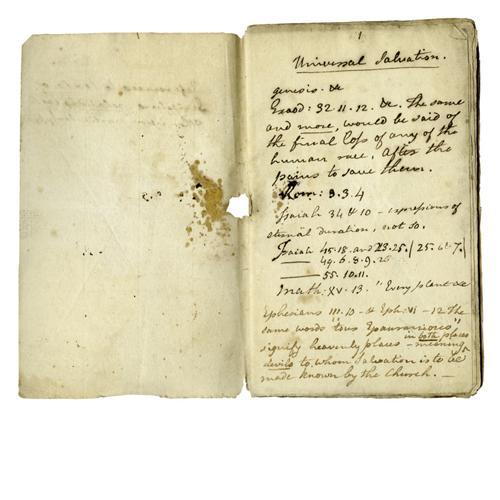 1
Universal Salvation.
genesis. &c
Exod: 32. 11. 12. &c. The same
and more, would be said of
the final loss of any of the
human race, after the
pains to save them.
Rom: 3.3.4
Isaiah 34 & 10 - expressions of
eternal duration, not so.
Isaiah 45.18. and 23.25. / 25. 6. 7. /
49. 6. 8. 9.
55. 10. 11.
Math: XV. 13. "Every plant &c
Ephesians III. 10 - & Eph: VI - 12 The
same words "tous Epouraniois"
signify heavenly places in both places
- meaning
devils to whom Salvation is to be
made known by the Church. -